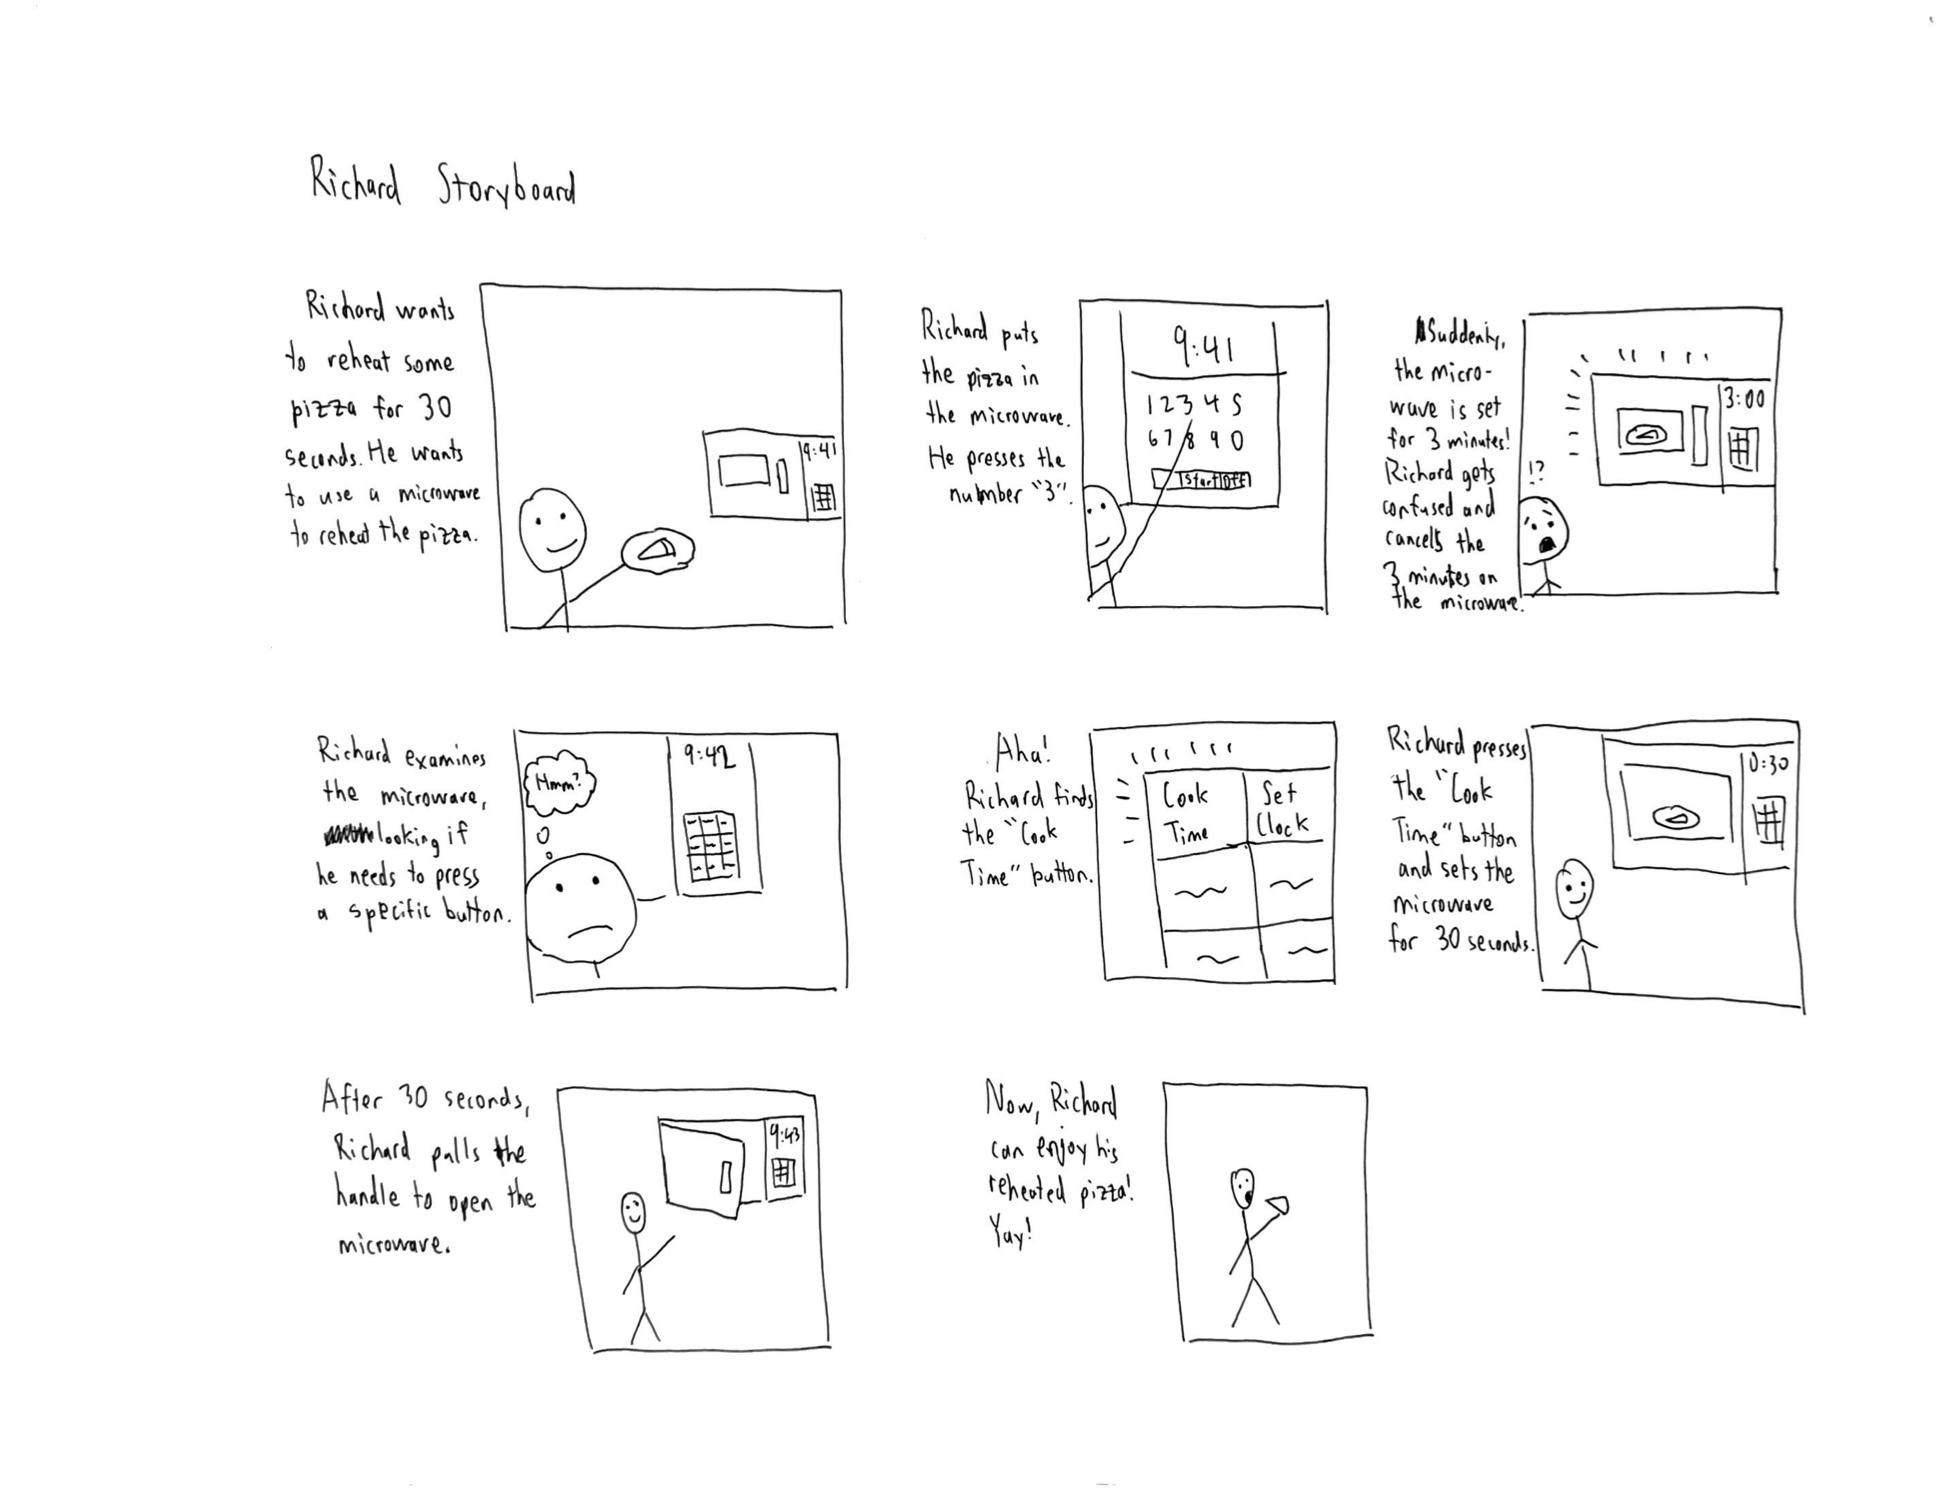 Richard Storyboard
Richard wants
to reheat some
pizza for 30
seconds. He wants
to use a microwave
to reheat the pizza.
9:41
Richard puts
the pizza in
the microwave.
He presses the
number "3".
9:41
1 2 3 4 5
6 7 8 9 0
Start Off
Suddenly,
the micro-
wave is set
for 3 minutes!
Richard gets
confused and
cancels the
3 minutes on
the microwave.
!?
3:00
Richard examines
the microwave,
looking if
he needs to press
a specific button.
Hmm?
9:42
Aha!
Richard finds
the "Cook
Time" button.
Cook
Time
Set
Clock
Richard presses
the "Cook
Time" button
and sets the
microwave
for 30 seconds.
0:30
After 30 seconds,
Richard pulls the
handle to open the
microwave.
9:43
Now, Richard
can enjoy his
reheated pizza!
Yay!